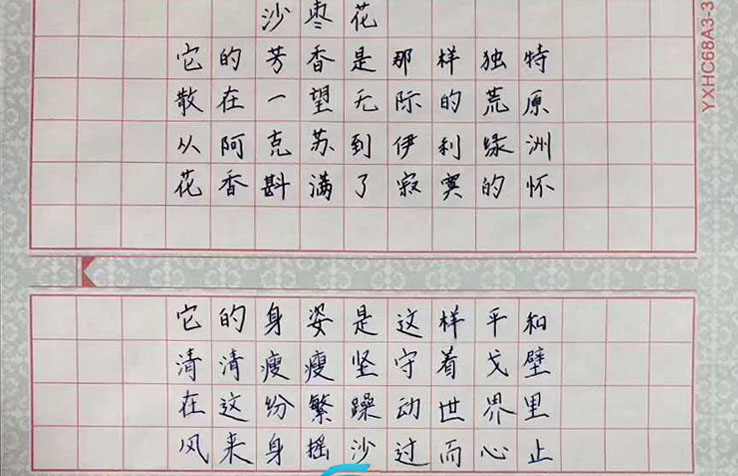 沙枣花
它的芳香是那样独特
散在一望无际的荒原
从阿克苏到伊利绿洲
花香斟满了寂寞的怀
它的身姿是这样平和
清清瘦瘦坚守着戈壁
在这纷繁躁动世界里
风来身摇沙过而心止
YXHC68A3-3